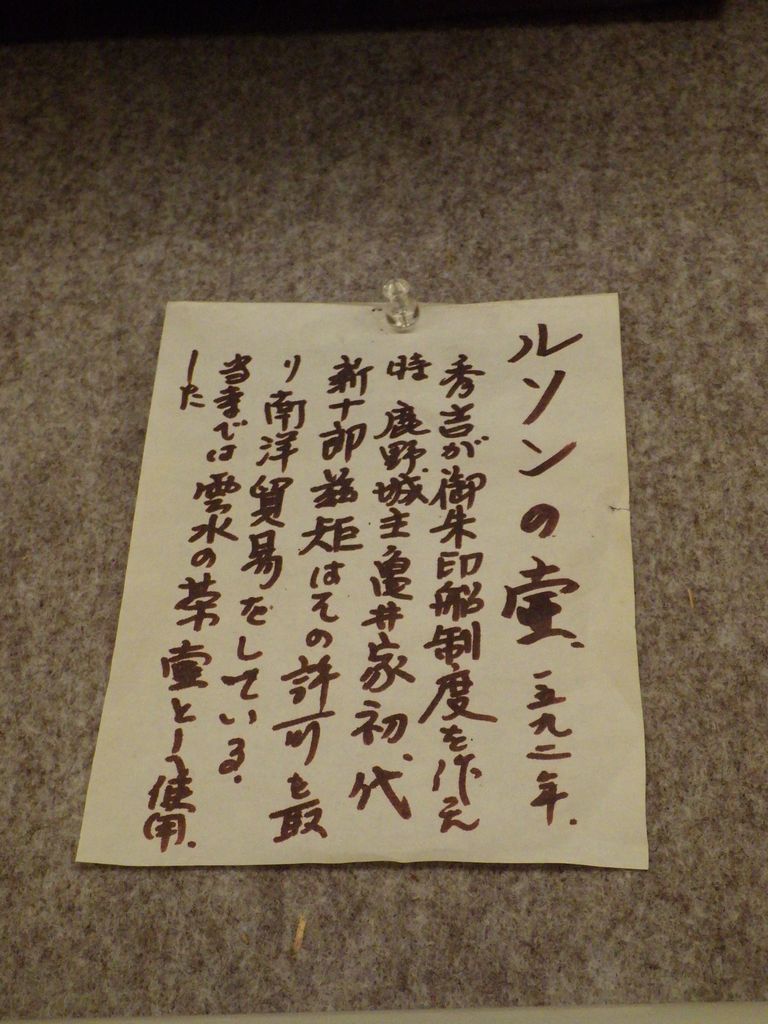 ルソンの壷 一五九二年.
秀吉が御朱印船制度を作った
時 鹿野城主亀井家初代
新十郎茲矩はその許可を取
り南洋貿易をしている.
当寺では雲水の茶壷として使用.
した